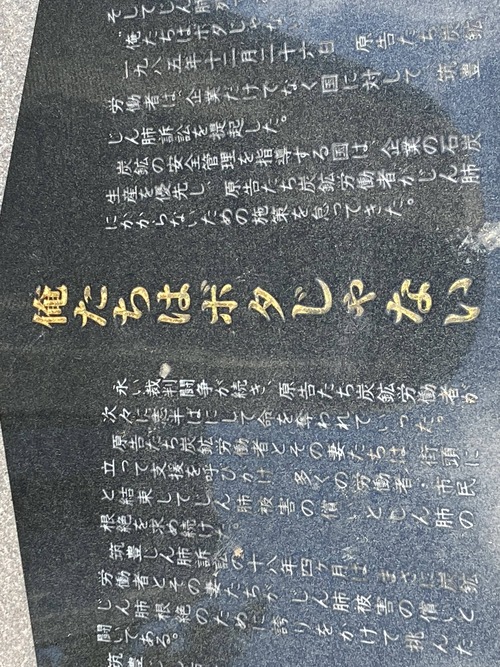 そしてじん肺
俺たちはボタじゃな
一九八五年十二月二十六日　原告たち炭鉱
労働者は、企業だけでなく国に対して　筑豊
じん肺訴訟を提起した。
炭鉱の安全管理を指導する国は、企業の石炭
生産を優先し、原告たち炭鉱労働者がじん肺
にかからないための施策を怠ってきた。
俺たちはボタじゃない
永い裁判闘争が続き、原告たち炭鉱労働者が
次々に志半ばにして命を奪われていった。
原告たち炭鉱労働者とその妻たちは、街頭に
立って支援を呼びかけ、多くの労働者・市民
と結束してじん肺被害の償いとじん肺の
根絶を求め続けた。
筑豊じん肺訴訟の十八年四ヶ月は、まさに炭鉱
労働者とその妻たちが、じん肺被害の償いと
じん肺根絶のために誇りをかけて挑んだ
闘いである。
筑豊じん